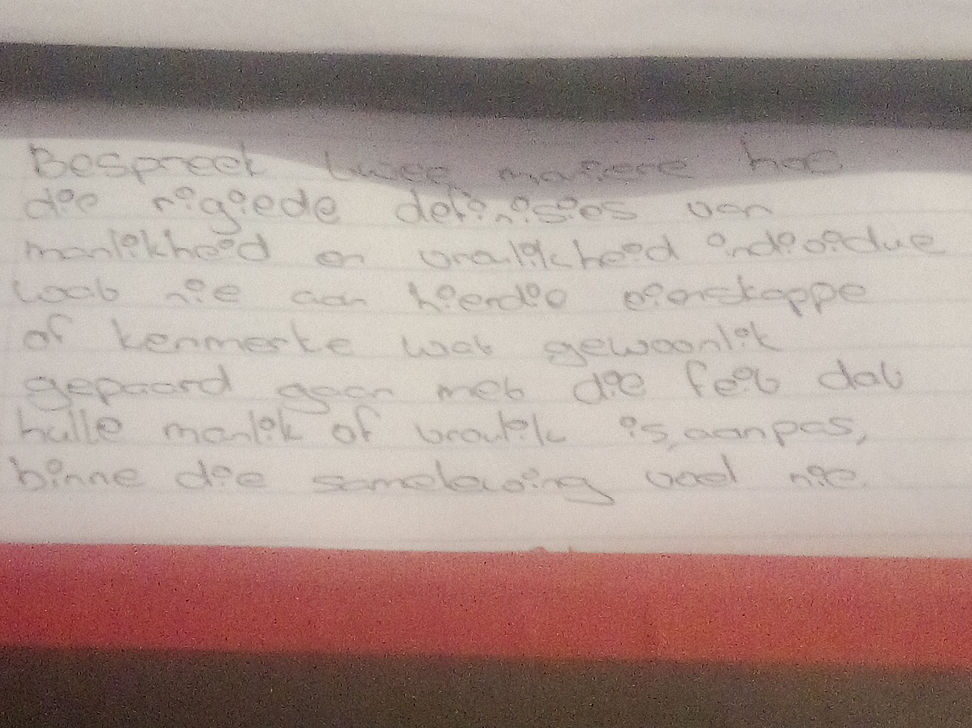 Bespreek twee maniere hoe
die rigiede definisies van
manlikheid en vroulikheid individue
laat nie aan hierdie eienskappe
of kenmerke wat gewoonlik
gepaard gaan met die feit dat
hulle manlik of vroulik is, aanpas,
binne die samelewing vael nie.